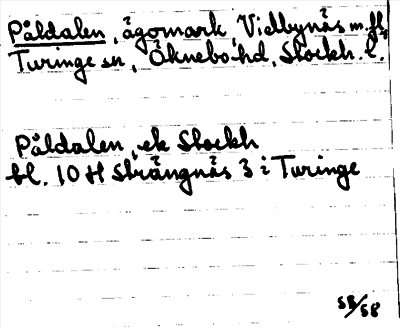 Påldalen, ägomark, Vidbynäs m.fl.,
Turinge sn, Öknebo hd, Stockh. l.
Påldalen, ek Stockh
bl. 10 H Strängnäs 3 i Turinge
58/58